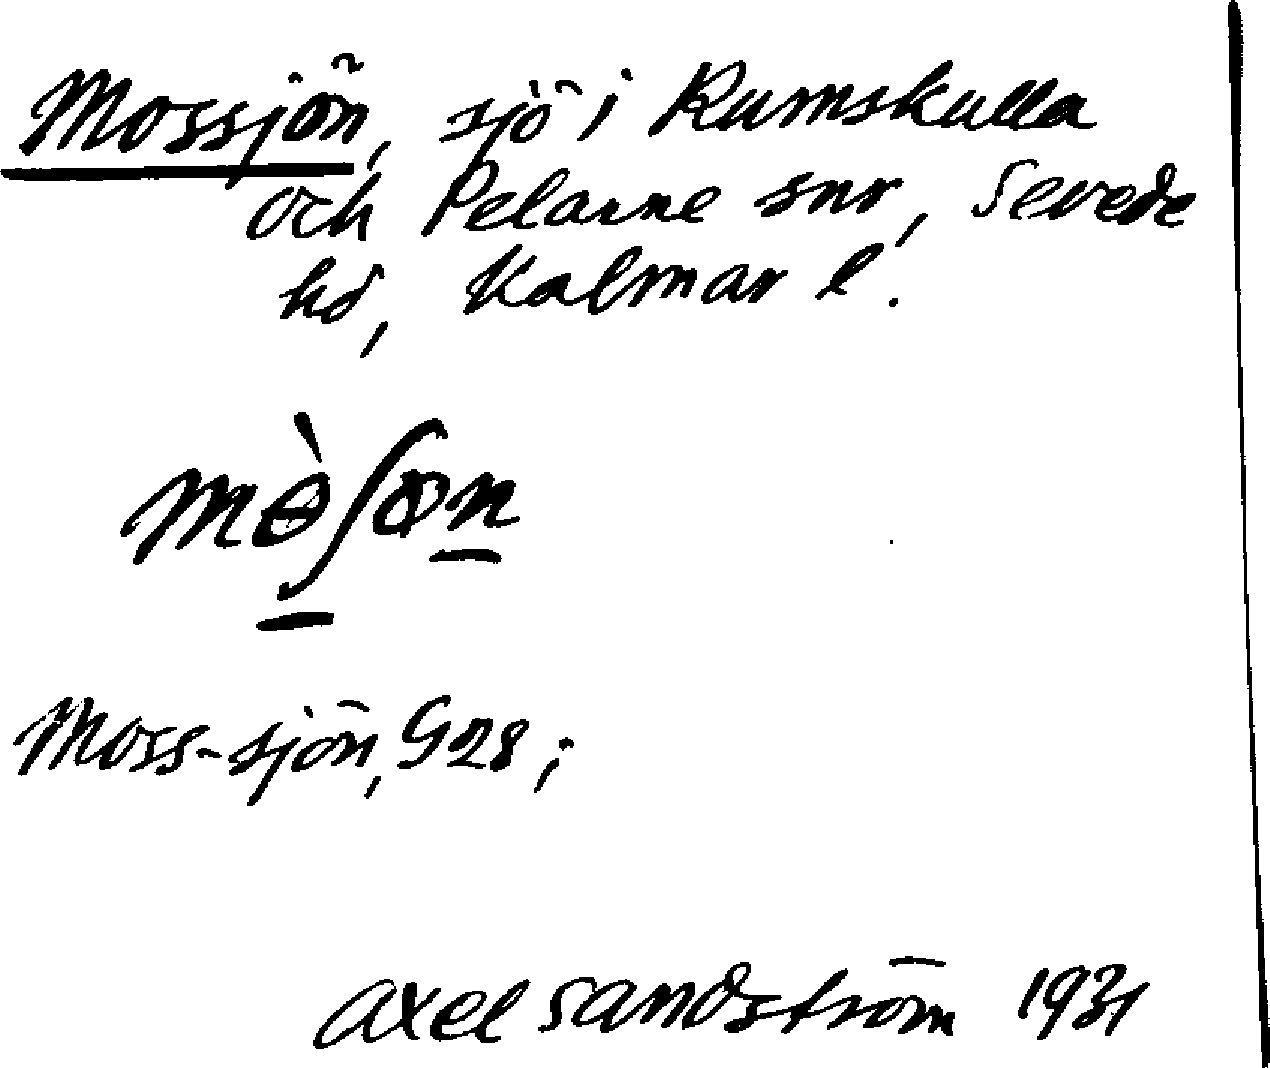 Mossjön, sjö i Rumskulla
och Pelarne snr, Sevede
hd, Kalmar l.
mòʃøn
Moss-sjön, G28;
Axel Sandström 1931